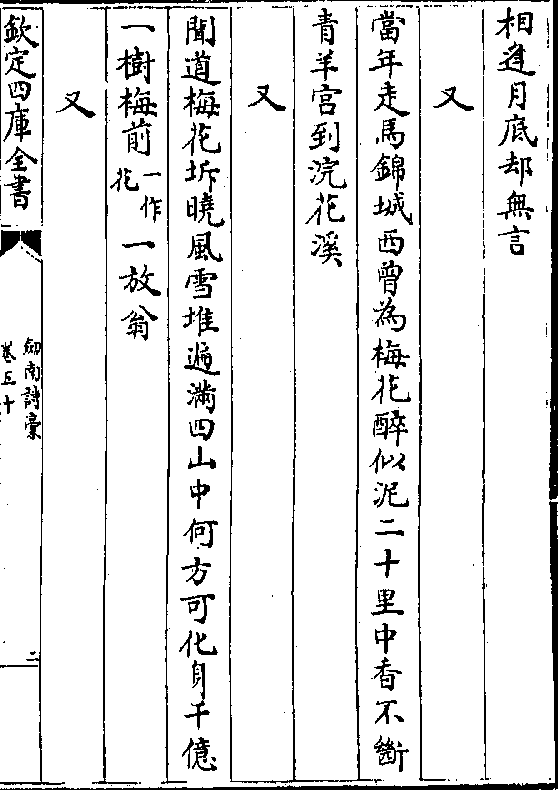 相逢月底却無言
又
當年走馬錦城西曾為梅花醉似泥二十里中香不斷
青羊宫到浣花溪
又
聞道梅花坼曉風雪堆遍滿四山中何方可化身千億
一樹梅前一作花一放翁
又
欽定四庫全書
劒南詩藁
卷五十
二